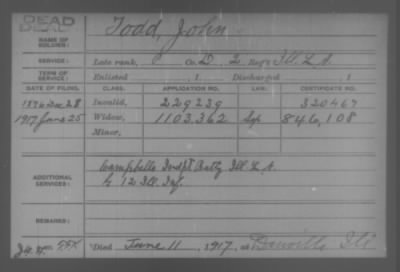 DEAD
DEAD
NAME OF SOLDIER: Todd, John
SERVICE: Late rank, P Co. D, 2 Reg't Ill. L. A.
TERM OF SERVICE: Enlisted , 1 . Discharged , 1 .
DATE OF FILING. CLASS. APPLICATION NO. LAW. CERTIFICATE NO.
1876 Dec. 28 Invalid, 229239 320467
1917 June 25 Widow, 1103,362 846,108
Minor,
ADDITIONAL SERVICES: Campbells Indpt Batty Ill. L. A.
12 Ill. Inf.
REMARKS:
Died June 11, 1917, at Danville Ill